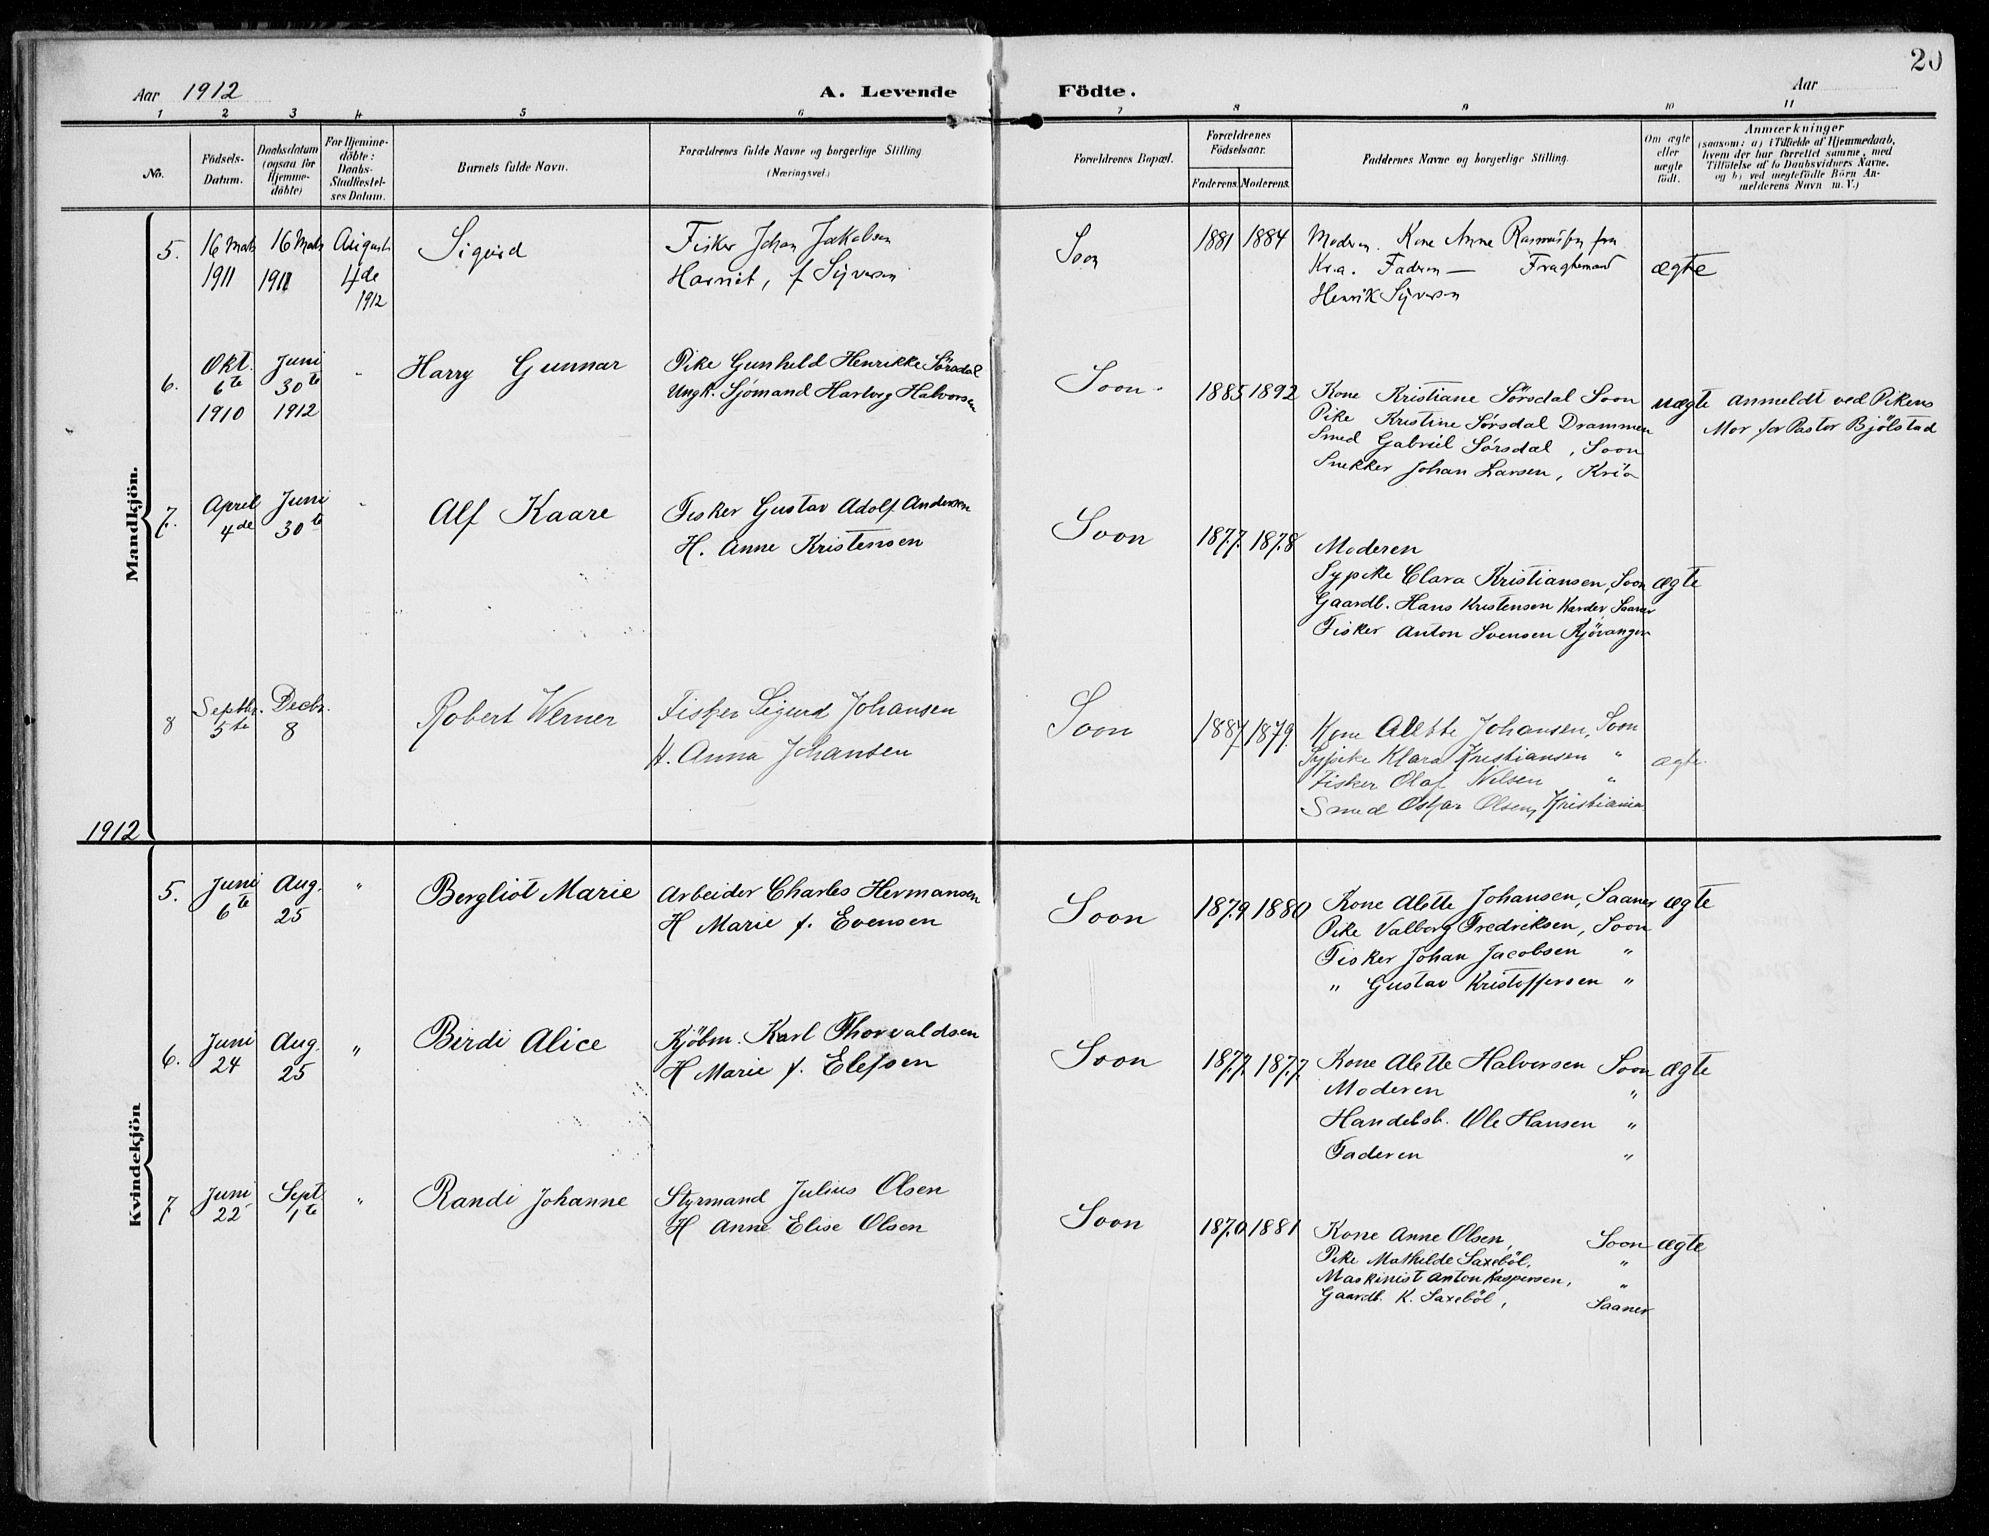 20
Aar 1912
A. Levende Födte.
Aar
1 2 3 4 5 6 7 8 9 10 11
No.
Födsels-Datum.
Daabsdatum (ogsaa for Hjemme-döbte)
For Hjemme-döbte: Daabs-Stadfæstel-ses Datum.
Barnets fulde Navn.
Forældrenes fulde Navne og borgerlige Stilling
(Næringsvei.)
Forældrenes Bopæl.
Forældrenes Födselsaar.
Faderens. Moderens.
Faddernes Navne og borgerlige Stilling.
Om ægte eller uægte födt.
Anmærkninger
(saasom: a) i Tilfælde af Hjemmedaab,
hvem der har forrettet samme, med
Tilföielse af to Daabsvidners Navne.
og b) ved uægtefödte Börn An-
melderens Navn m. V.)
Mandkjön.
5. 16 Mats 1911 16 Mats 1911 August 4de 1912 Sigurd
Fisker Johan Jakobsen
Harriet, f Syversen
Soon 1881 1884
Moderen. Kone Anne Rasmussen fra
Kr.a. Faderen — Fragtemand
Henrik Syversen
ægte
6. Okt. 6te 1910 Juni 30te 1912 " Harry Gunnar
Pike Gunhild Henrikke Sörsdal
Ungk. Sjömand Hartvig Halvorsen
Soon. 1885 1892
Kone Kristiane Sörsdal Soon
Pike Kristine Sörsdal Drammen
Smed Gabriel Sörsdal, Soon
Snekker Johan Larsen, Kria
uægte
Anmeldt ved Pikens
Mor for Pastor Bjölstad
7. April 4de Juni 30te " Alf Kaare
Fisker Gustav Adolf Andersen
H. Anne Kristensen
Soon 1877. 1878
Moderen
Sypike Clara Kristiansen, Soon
Gaardb. Hans Kristensen Saaner
Fisker Anton Svensen Kjövangen
ægte
8 Septbr. 5te Decbr. 8 Robert Werner
Fisker Sigurd Johansen
H. Anna Johansen
Soon 1887 1879.
Kone Alette Johansen, Soon
Sypike Klara Kristiansen "
Fisker Olaf Nilsen "
Smed Oskar Olsen, Kristiania
ægte.
1912
Kvindekjön
5. Juni 6te Aug. 25 " Bergliot Marie
Arbeider Charles Hermansen
H Marie f. Evensen
Soon 1879 1880
Kone Alette Johansen, Saaner
Pike Valborg Fredriksen, Soon
Fisker Johan Jacobsen "
" Gustav Kristoffersen "
ægte
6. Juni 24 Aug. 25 " Birdi Alice
Kjöbm. Karl Thorvaldsen
H Marie f. Elefsen
Soon 1877. 1877.
Kone Alette Halvorsen Soon
Moderen "
Handelsb. Ole Hansen "
Faderen "
ægte
7 Juni 22 Sept 1te " Randi Johanne
Styrmand Julius Olsen
H Anne Elise Olsen
Soon 1870 1881
Kone Anne Olsen, Soon
Pike Mathilde Saxeböl, "
Maskinist Anton Kaspersen, "
Gaardb. K. Saxeböl, Saaner
ægte